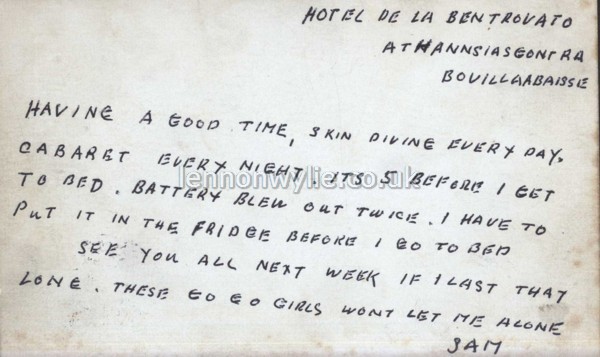 HOTEL DE LA BENTROVATO
ATHANNSIASCONTRA
BOUILLAABAISSE
HAVING A GOOD TIME, SKIN DIVING EVERY DAY.
CABARET EVERY NIGHT. ITS 5 BEFORE I GET
lennonwylie.co.uk
TO BED. BATTERY BLEW OUT TWICE. I HAVE TO
PUT IT IN THE FRIDGE BEFORE I GO TO BED
SEE YOU ALL NEXT WEEK IF I LAST THAT
LONG. THESE GO GO GIRLS WONT LET ME ALONE
SAM